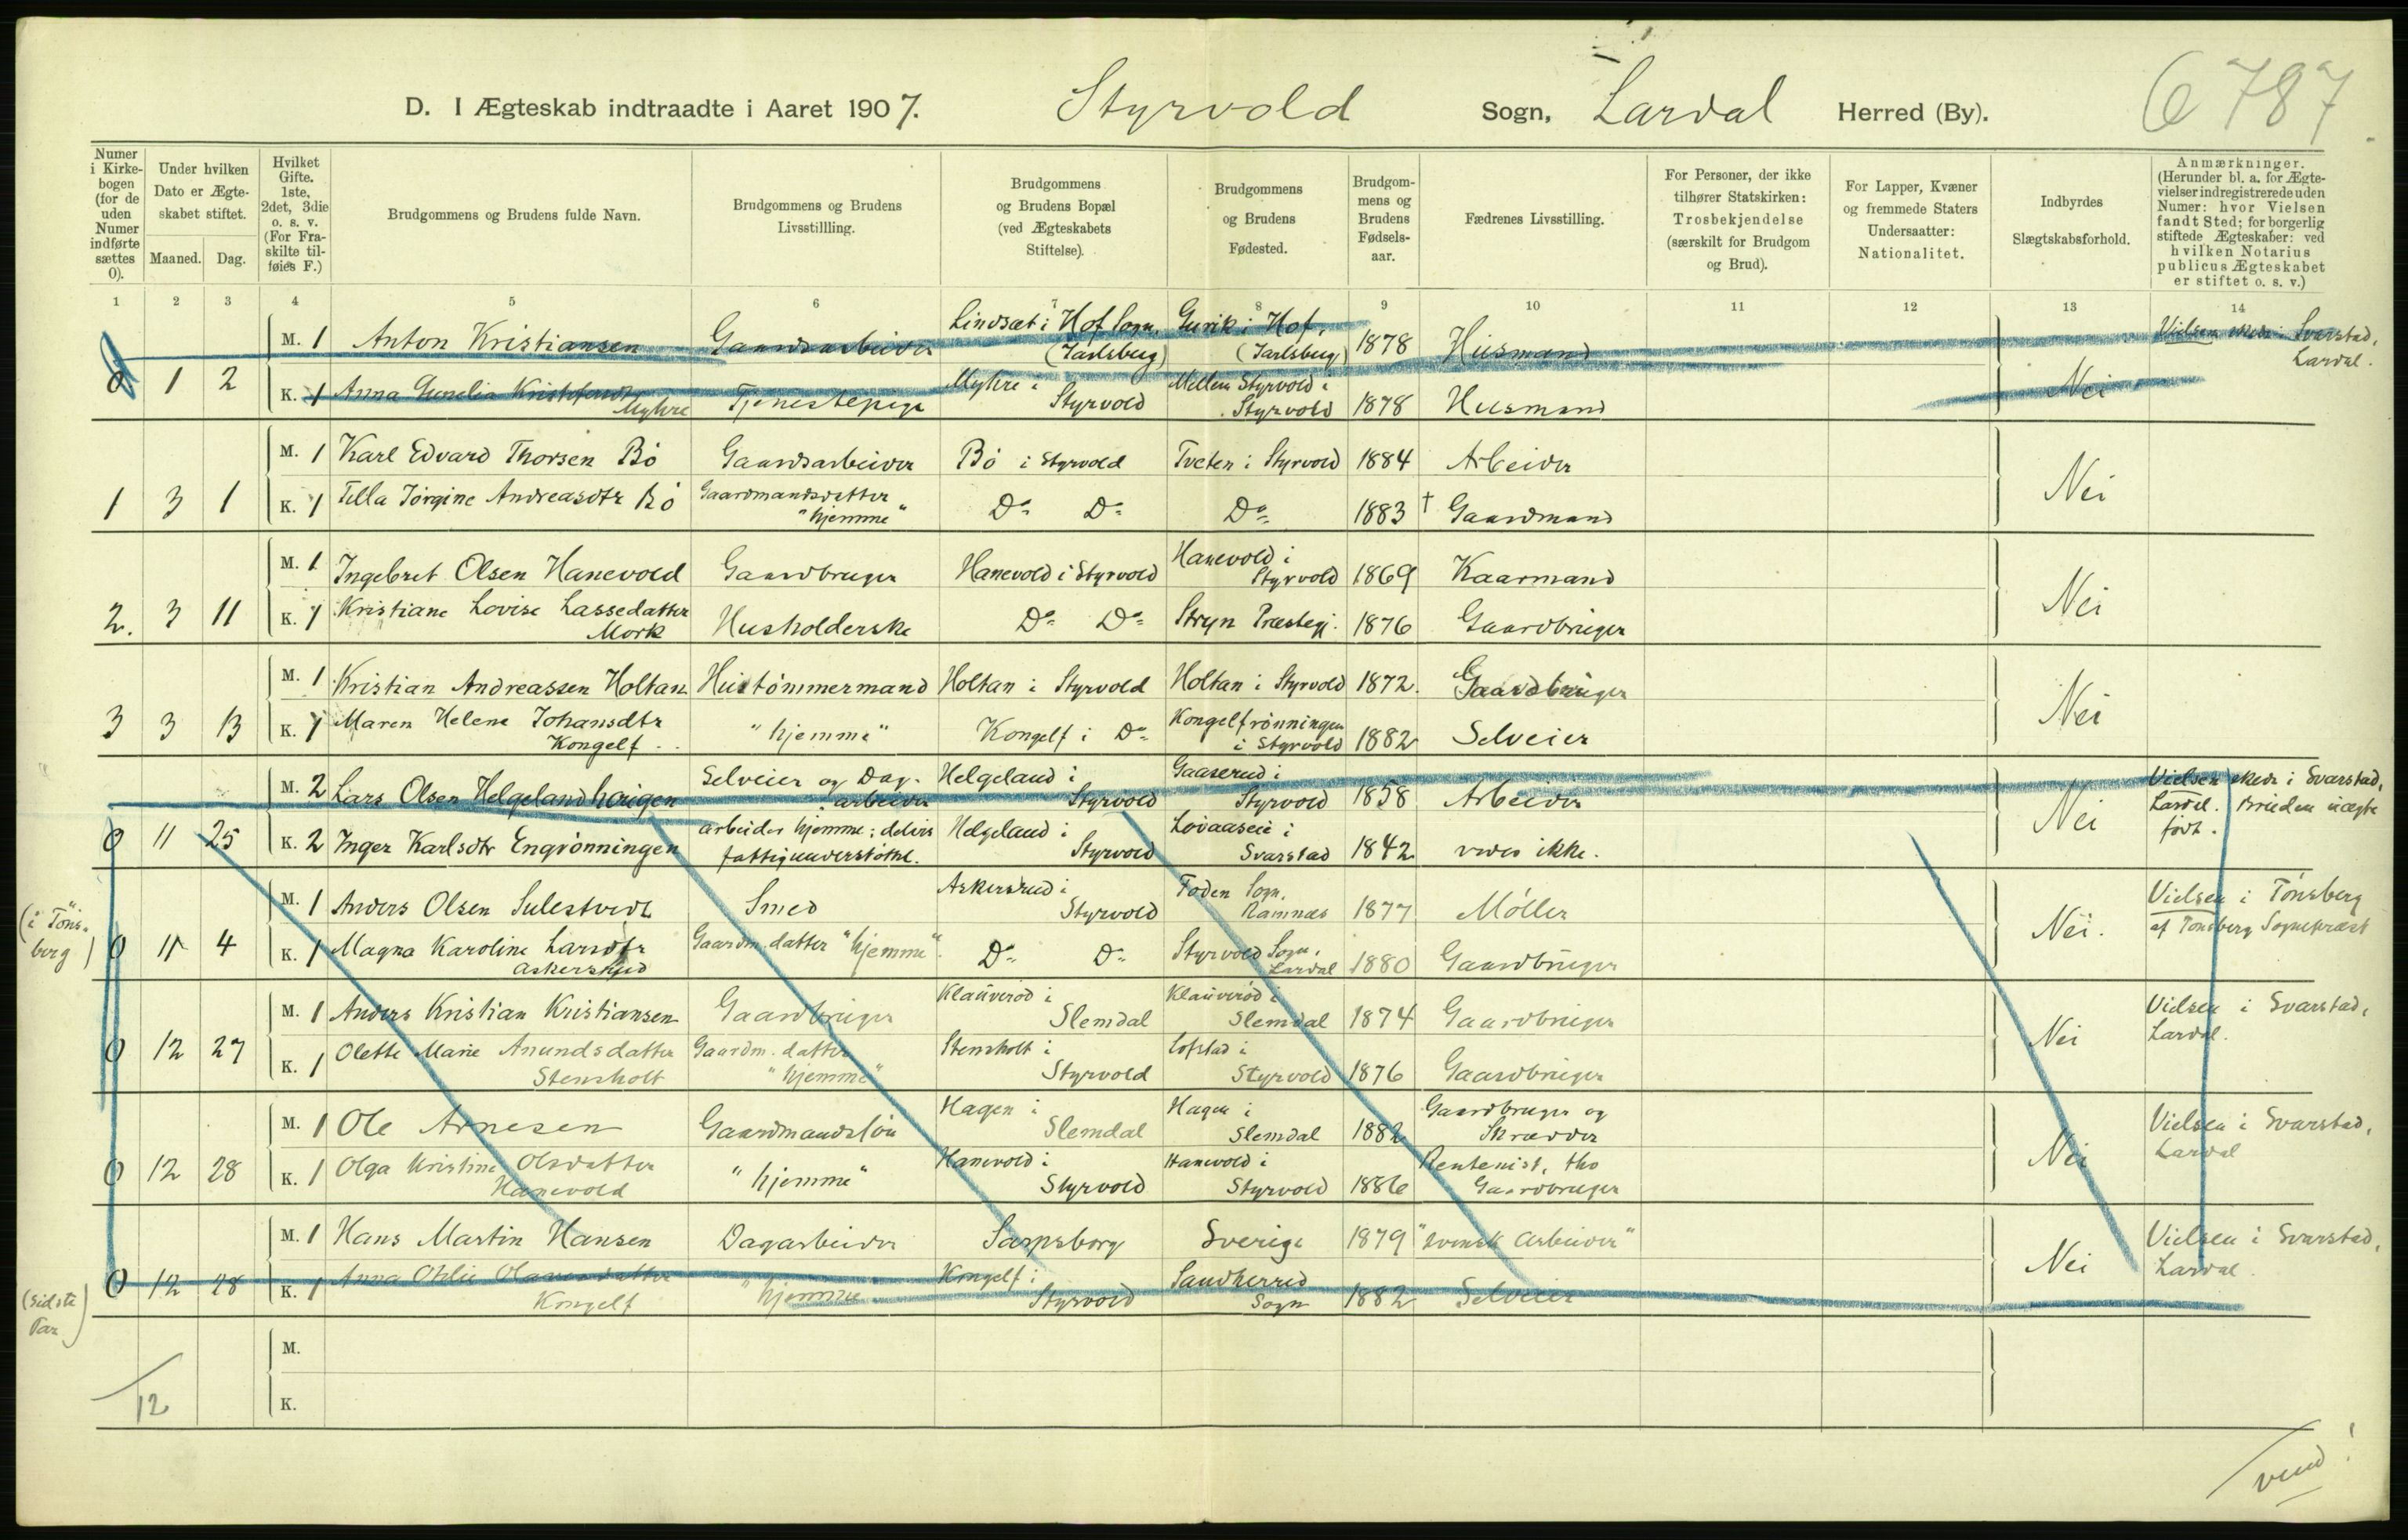 6787
D. I Ægteskab indtraadte i Aaret 1907. Styrvold Sogn, Lardal Herred (By).
Numer i Kirke-bogen (for de uden Numer indførte sættes 0).
Under hvilken Dato er Ægte-skabet stiftet.
Maaned. Dag.
Hvilket Gifte. 1ste, 2det, 3die o. s. v. (For Fra-skilte til-føies F.)
Brudgommens og Brudens fulde Navn.
Brudgommens og Brudens Livsstillling.
Brudgommens og Brudens Bopæl (ved Ægteskabets Stiftelse).
Brudgommens og Brudens Fødested.
Brudgom-mens og Brudens Fødsels-aar.
Fædrenes Livsstilling.
For Personer, der ikke tilhører Statskirken: Trosbekjendelse (særskilt for Brudgom og Brud).
For Lapper, Kvæner og fremmede Staters Undersaatter: Nationalitet.
Indbyrdes Slægtskabsforhold.
Anmærkninger. (Herunder bl. a. for Ægte-vielser indregistrerede uden Numer: hvor Vielsen fandt Sted; for borgerlig stiftede Ægteskaber: ved hvilken Notarius publicus Ægteskabet er stiftet o. s. v.)
1 2 3 4 5 6 7 8 9 10 11 12 13 14
M. 1 Anton Kristiansen Gaardsarbeider Lindsæt i Hof Sogn, (Jarlsberg) i Hof, (Jarlsberg) 1878 Husmand Vielsen skede i Svarstad, Lardal.
0 1 2 K. 1 Anna Myhre Tjenestepige Myhre i Styrvold Mellem Styrvold i Styrvold 1878 Husmand Nei
M. 1 Karl Edvard Thorsen Bö Gaardsarbeider Bö i Styrvold Tveten i Styrvold 1884 Arbeider
1 3 1 K. 1 Tella Jörgine Andreasdtr Bö Gaardmandsdatter "hjemme" Do Do Do 1883 † Gaardmand Nei
M. 1 Ingebret Olsen Hanevold Gaardbruger Hanevold i Styrvold Hanevold i Styrvold 1869 Kaarmand
2. 3 11 K. 1 Kristiane Lovise Lassedatter Mork Husholderske Do Do Stryn Præstegj. 1876 Gaardbruger Nei
M. 1 Kristian Andreassen Holtan Hustömmermand Holtan i Styrvold Holtan i Styrvold 1872. Gaardbruger
3 3 13 K. 1 Maren Helene Johansdtr Kongelf "hjemme" Kongelf i Do Kongelfrönningen i Styrvold 1882 Selveier Nei
M. 2 Lars Olsen Helgelandhaugen Selveier og Dag-arbeider Helgeland i Styrvold Gaaserud i Styrvold 1858 Arbeider Vielsen skede i Svarstad, Lardal. Bruden uægte født.
0 11 25 K. 2 Inger Karlsdtr Engrönningen arbeider hjemme; delvis fattigunderstöttet. Helgeland i Styrvold Lovaaseie i Svarstad 1842 vides ikke. Nei
M. 1 Anders Olsen Sulestvedt Smed Askerskud i Styrvold Foden Sogn, Ramnæs 1877 Möller Vielsen i Tönsberg af Tönsberg Sognepræst
(i Töns-berg) 0 11 4 K. 1 Magna Karoline Larsdtr Askerskud Gaardm. datter "hjemme". Do Do Styrvold Sogn, Lardal 1880 Gaardbruger Nei.
M. 1 Anders Kristian Kristiansen Gaardbruger Klauveröd i Slemdal Klauveröd i Slemdal 1874 Gaardbruger Vielsen i Svarstad, Lardal.
0 12 27 K. 1 Olette Marie Anundsdatter Stensholt Gaardm. datter "hjemme" Stensholt i Styrvold Lofstad i Styrvold 1876 Gaardbruger Nei
M. 1 Ole Arnesen Gaardmandssön Hagen i Slemdal Hagen i Slemdal 1882 Gaardbruger og Skrædder Vielsen i Svarstad, Lardal
0 12 28 K. 1 Olga Kristine Olsdatter Hanevold "hjemme" Hanevold i Styrvold Hanevold i Styrvold 1886 Rentenist, Gaardbruger Nei
M. 1 Hans Martin Hansen Dagarbeider Sarpsborg Sverige 1879 "svensk Arbeider" Vielsen i Svarstad, Lardal.
(Sidste Par) 0 12 28 K. 1 Anna Otilie Kongelf "hjemme" Kongelf i Styrvold Sandherred Sogn 1882 Selveier Nei
M.
K.
/12
vend!